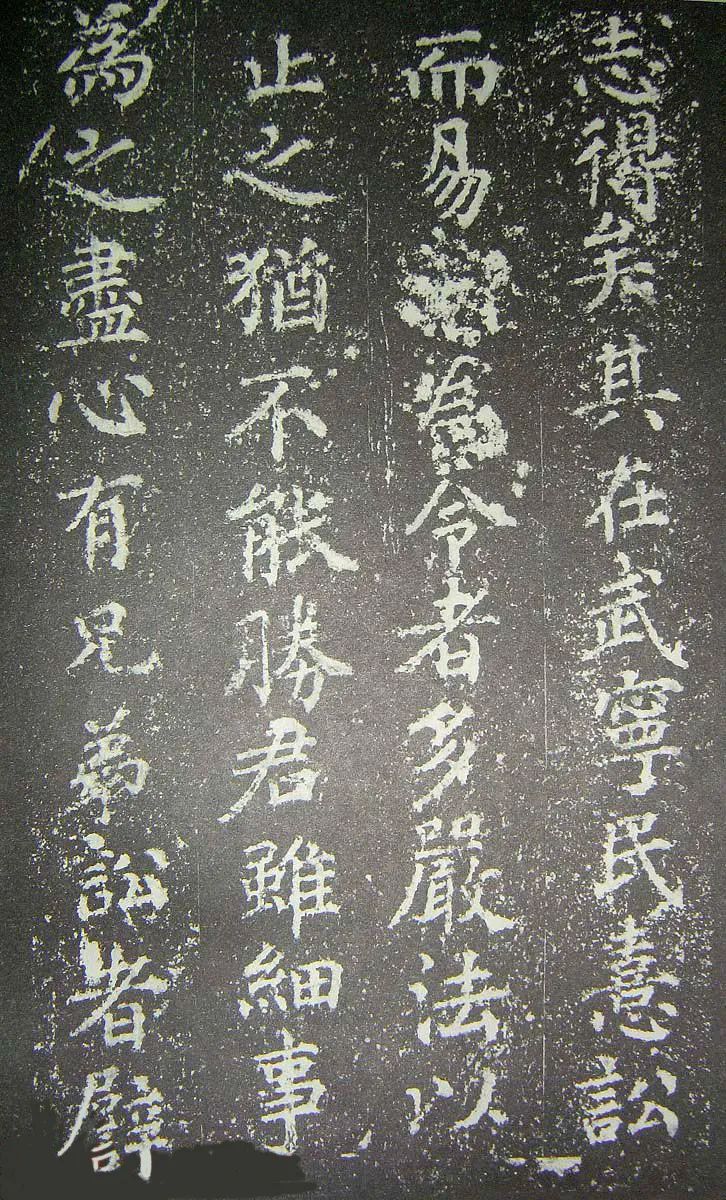 志得矣其在武寧民憙訟
而易為令者多嚴法以
止之猶不能勝君雖細事
為之盡心有兄弟訟者譬